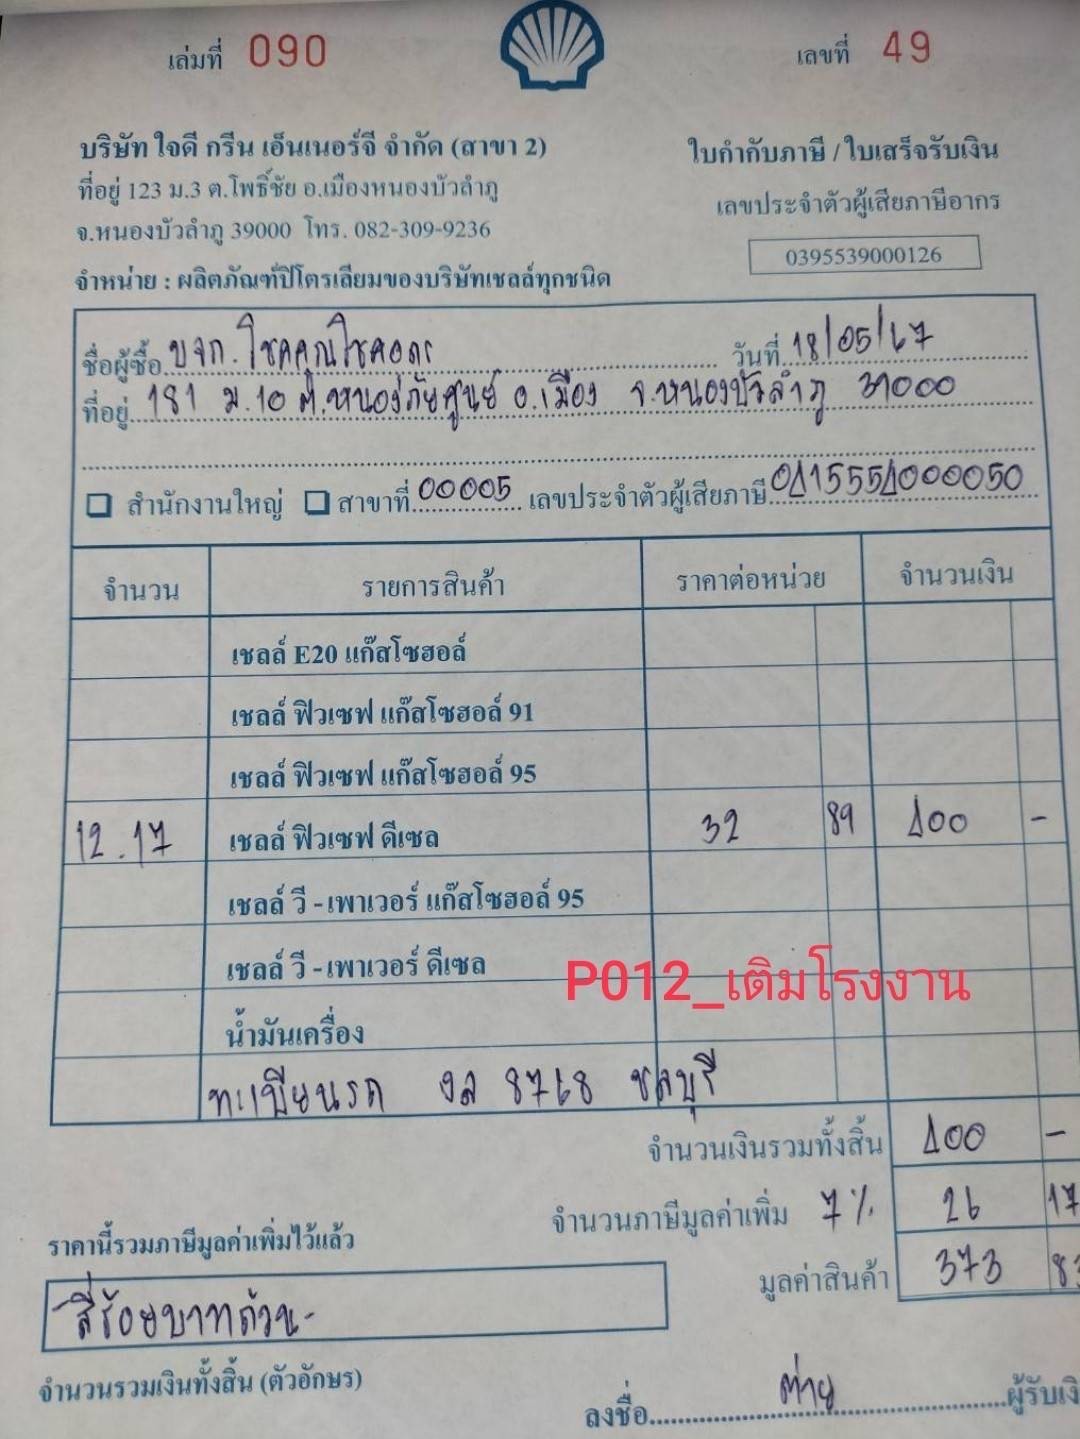 เล่มที่ 090
เลขที่ 49
บริษัท ใจดี กรีน เอ็นเนอร์จี จำกัด (สาขา 2)
ใบกำกับภาษี / ใบเสร็จรับเงิน
ที่อยู่ 123 ม.3 ต.โพธิ์ชัย อ.เมืองหนองบัวลำภู
เลขประจำตัวผู้เสียภาษีอากร
จ.หนองบัวลำภู 39000 โทร. 082-309-9236
0395539000126
จำหน่าย : ผลิตภัณฑ์ปิโตรเลียมของบริษัทเชลล์ทุกชนิด
ชื่อผู้ซื้อ บจก. โชคคูณโชคอดร วันที่ 18/05/67
ที่อยู่ 181 ม.10 ต.หนองภัยศูนย์ อ.เมือง จ.หนองบัวลำภู 39000
สำนักงานใหญ่ สาขาที่ 00005 เลขประจำตัวผู้เสียภาษี 0415554000050
จำนวน รายการสินค้า ราคาต่อหน่วย จำนวนเงิน
เชลล์ E20 แก๊สโซฮอล์
เชลล์ ฟิวเซฟ แก๊สโซฮอล์ 91
เชลล์ ฟิวเซฟ แก๊สโซฮอล์ 95
12.17 เชลล์ ฟิวเซฟ ดีเซล 32 89 400 -
เชลล์ วี - เพาเวอร์ แก๊สโซฮอล์ 95
เชลล์ วี - เพาเวอร์ ดีเซล
P012_เติมโรงงาน
น้ำมันเครื่อง
ทะเบียนรถ งล 8768 ชลบุรี
จำนวนเงินรวมทั้งสิ้น 400 -
จำนวนภาษีมูลค่าเพิ่ม 7% 26 17
ราคานี้รวมภาษีมูลค่าเพิ่มไว้แล้ว
มูลค่าสินค้า 373 83
-สี่ร้อยบาทถ้วน-
จำนวนรวมเงินทั้งสิ้น (ตัวอักษร)
ลงชื่อ ต่าย ผู้รับเงิ